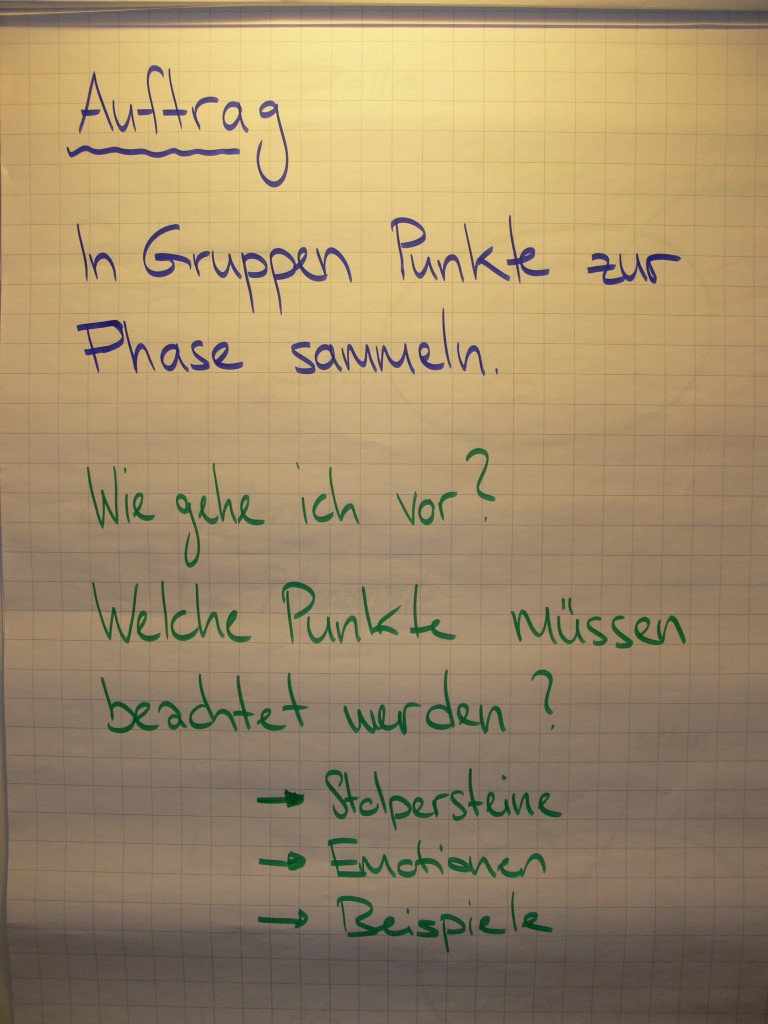 Auftrag
In Gruppen Punkte zur
Phase sammeln.
Wie gehe ich vor?
Welche Punkte müssen
beachtet werden?
→ Stolpersteine
→ Emotionen
→ Beispiele